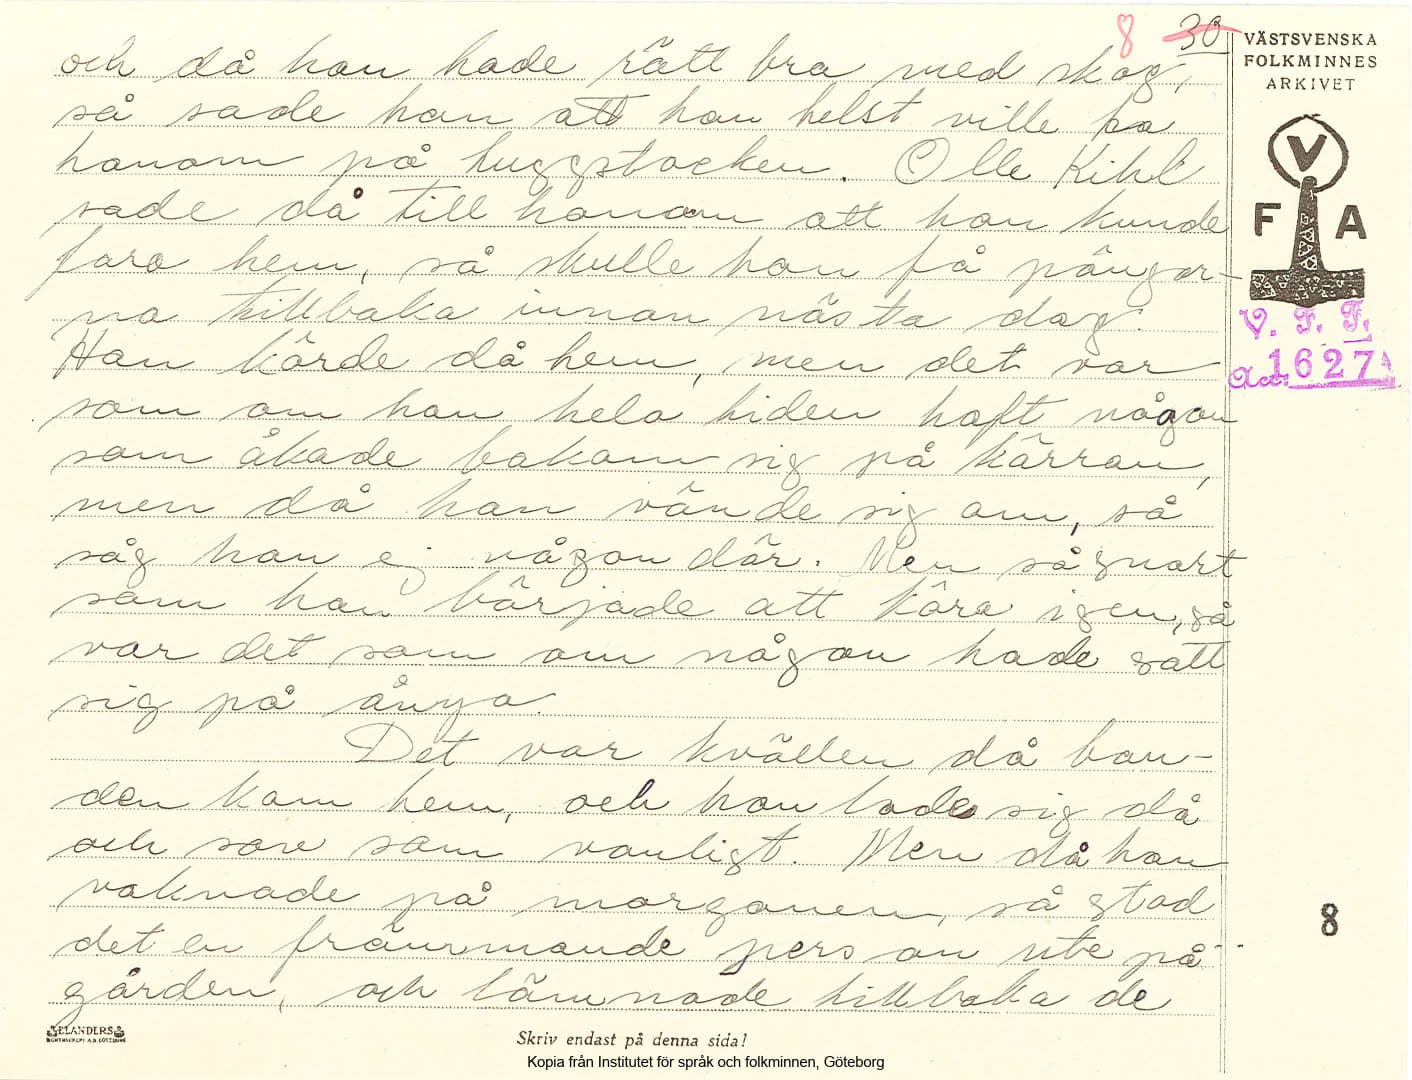 8 30
VÄSTSVENSKA
FOLKMINNES
ARKIVET
och då han hade rätt bra med skog,
så sade han att han helst ville ha
honom på huggstocken. Olle Kihl
sade då till honom att han kunde
fara hem, så skulle han få pängar-
na tillbaka innan nästa dag.
Han körde då hem, men det var
som om han hela tiden haft någon
som åkade bakom sig på kärran,
men då han vände sig om, så
såg han ej någon där. Men så snart
som han började att köra igen, så
var det som om någon hade satt
sig på ånyo.
Det var kvällen då bon-
den kom hem, och han lade sig då
och sov som vanligt. Men då han
vaknade på morgonen, så stod
det en främmande person ute på
gården, och lämnade tillbaka de
V
F A
V. F. F.
Acc. 1627
8
ELANDERS
BOKTRYCKERI A.B. GÖTEBORG
Skriv endast på denna sida!
Kopia från Institutet för språk och folkminnen, Göteborg